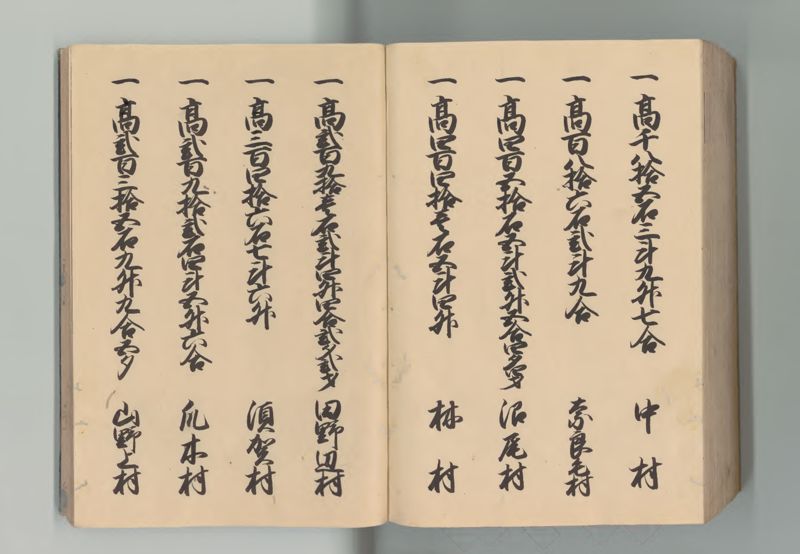 一高千八拾五石三斗九升七合 中村
一高百八拾六石弐斗九合 奈良毛村
一高四百五拾石五斗弐升五合四勺 沼尾村
一高四百四拾壱石五斗四升 林村
一高弐百九拾壱石弐斗四升四合弐勺弐才 田野辺村
一高三百四拾六石七斗六升 須賀村
一高弐百九拾弐石四斗五升六合 爪木村
一高弐百三拾五石九升九合五夕 山野上村